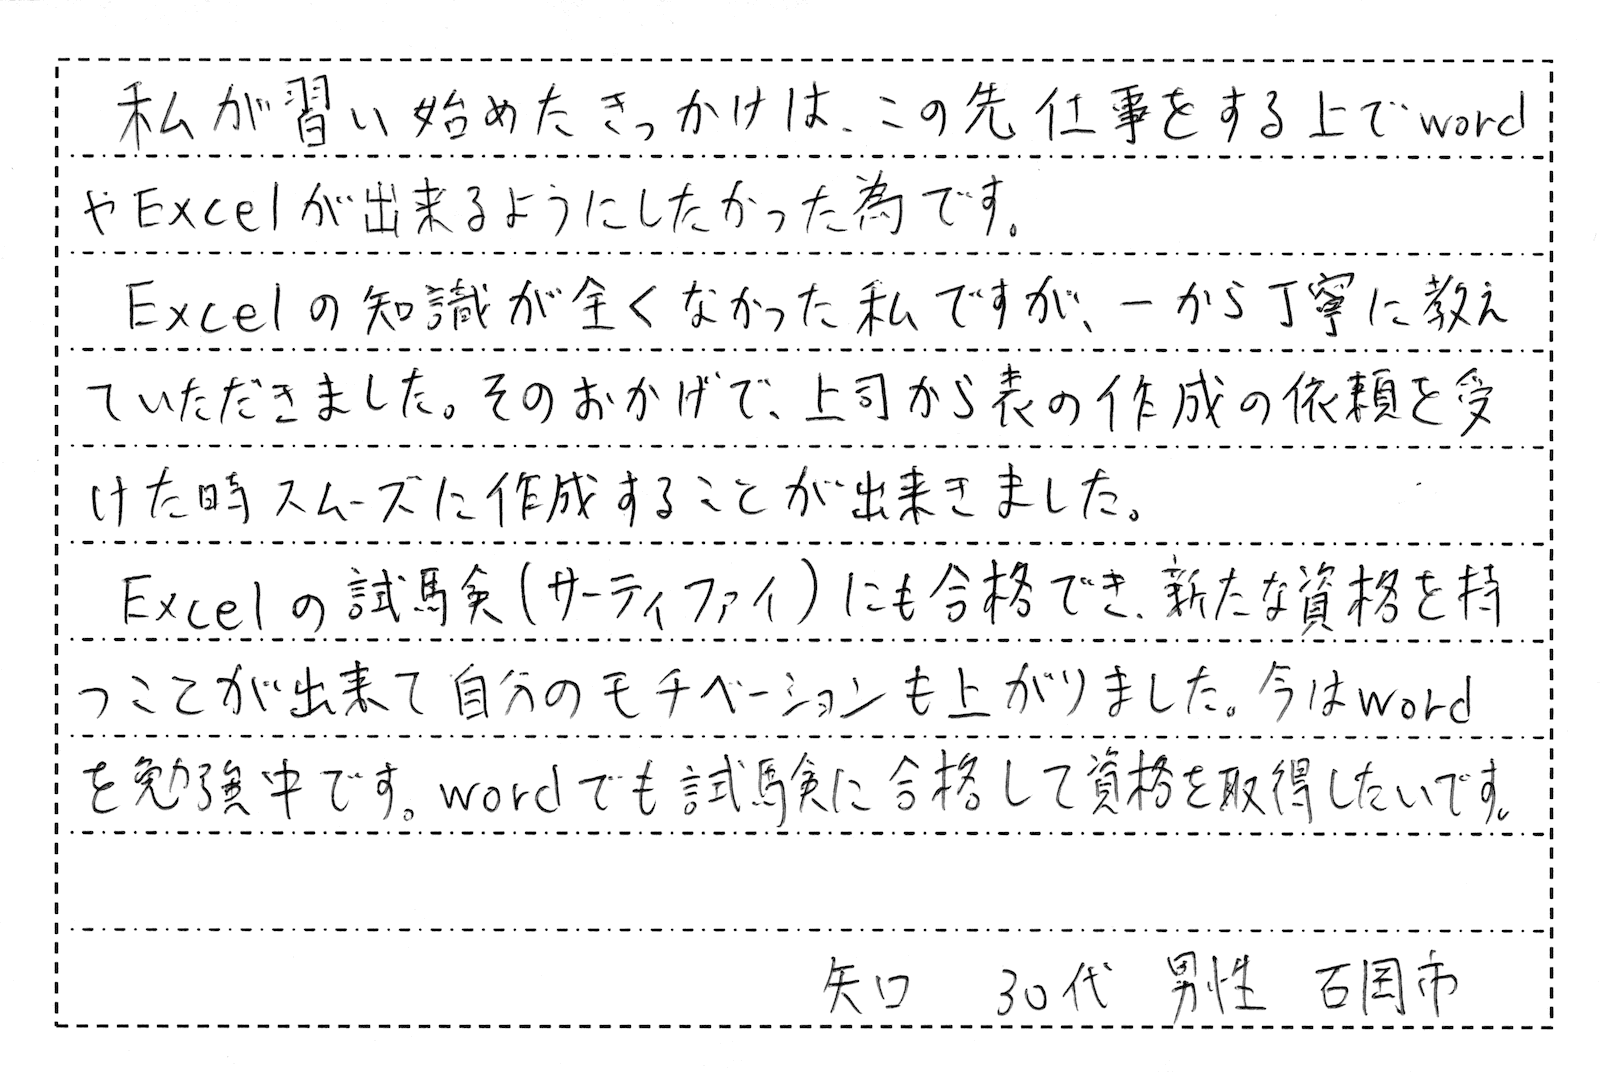 私が習い始めたきっかけは、この先仕事をする上でword
やExcelが出来るようにしたかった為です。
Excelの知識が全くなかった私ですが、一から丁寧に教え
ていただきました。そのおかげで、上司から表の作成の依頼を受
けた時スムーズに作成することが出来きました。
Excelの試験(サーティファイ)にも合格でき、新たな資格を持
つことが出来て自分のモチベーションも上がりました。今はword
を勉強中です。wordでも試験に合格して資格を取得したいです。
矢口 30代 男性 石岡市